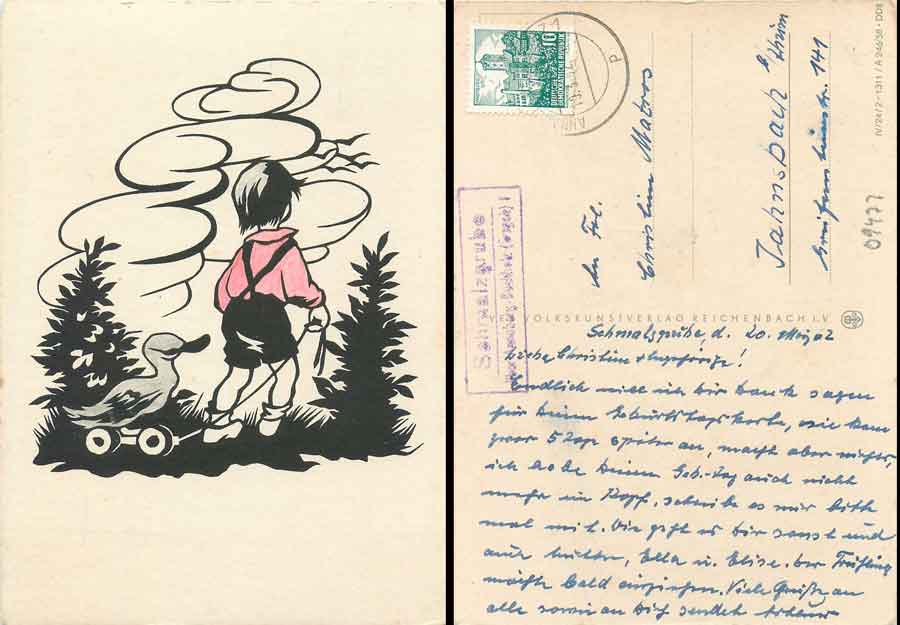 10
DEUTSCHE
DEMOKRATISCHE REPUBLIK
An Frl.
Christine Matros
Jahnsbach
141
09477
IV/24/2-1311/A 246/58-DDR
Schmalzgrube
VEB VOLKSKUNSTVERLAG REICHENBACH I.V.
Schmalzgrube, d. 20. März 62
Liebe Christine u. Angehörige!
Endlich will ich Dir Dank sagen
für Deine Geburtstagskarte, sie kam
zwar 5 Tage später an, macht aber nichts,
ich habe Deinen Geb.-Tag auch nicht
mehr im Kopf, schreibe es mir bitte
mal mit. Wie geht es Dir sonst und
auch Mutter, Ella u. Elise. Der Frühling
möchte bald einziehen. Viele Grüße an
alle sowie an Dich sendet Arthur